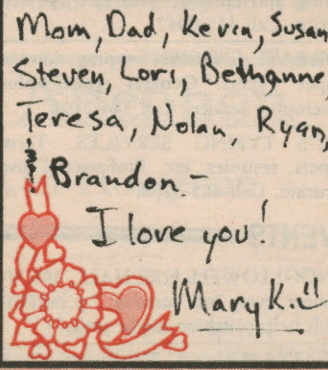 Mom, Dad, Kevin, Susan
Steven, Lori, Bethanne
Teresa, Nolan, Ryan,
& Brandon -
I love you!
Mary K.